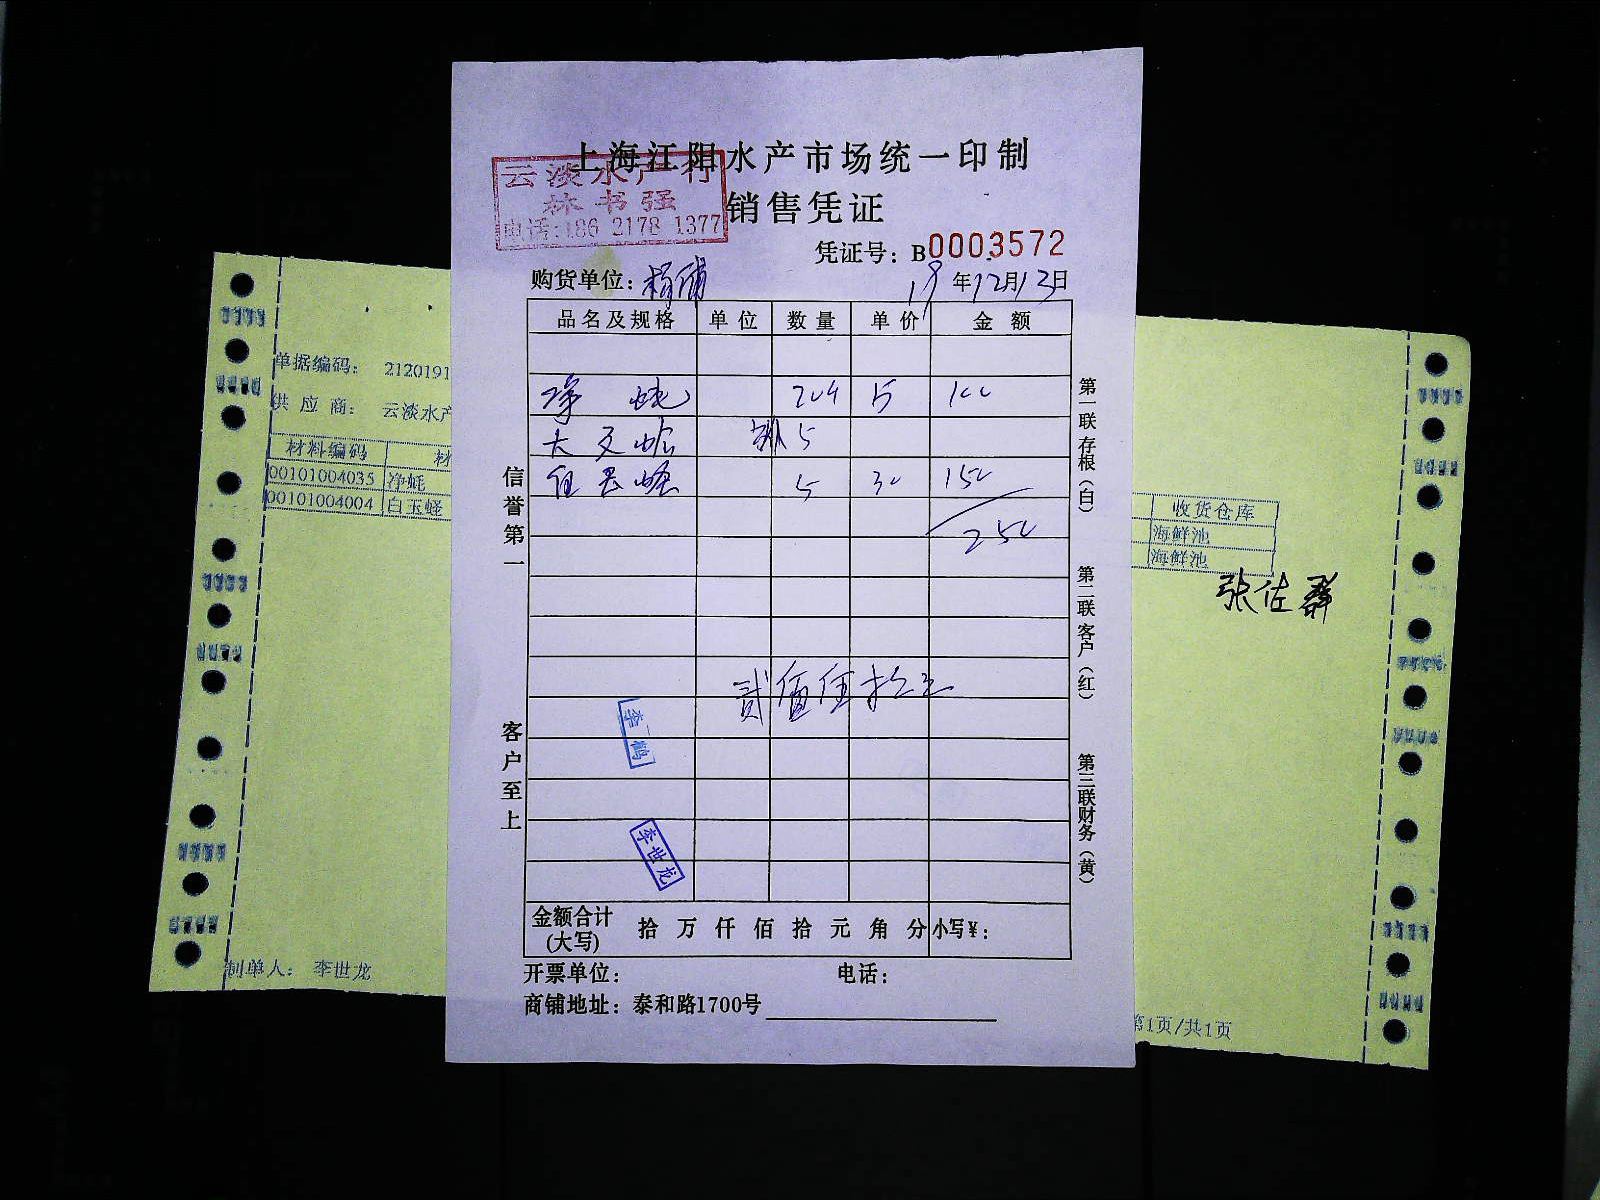 上海江阳水产市场统一印制
云淡水产行
林书强
电话:186 2178 1377
销售凭证
凭证号: B0003572
购货单位: 杨浦 19年12月13日
品名及规格 单位 数量 单价 金额
净 蚝 20个 5 100
大文蛤 5
白玉蛏 5 30 150
250
贰佰伍拾元
李鹤
李世龙
金额合计(大写) 拾 万 仟 佰 拾 元 角 分 小写¥:
开票单位: 电话:
商铺地址: 泰和路1700号
信誉第一
客户至上
第一联存根(白)
第二联客户(红)
第三联财务(黄)
单据编码: 2120191
供应商: 云淡水产
材料编码 材
00101004035 净蚝
00101004004 白玉蛏
制单人: 李世龙
收货仓库
海鲜池
海鲜池
张佐群
第1页/共1页